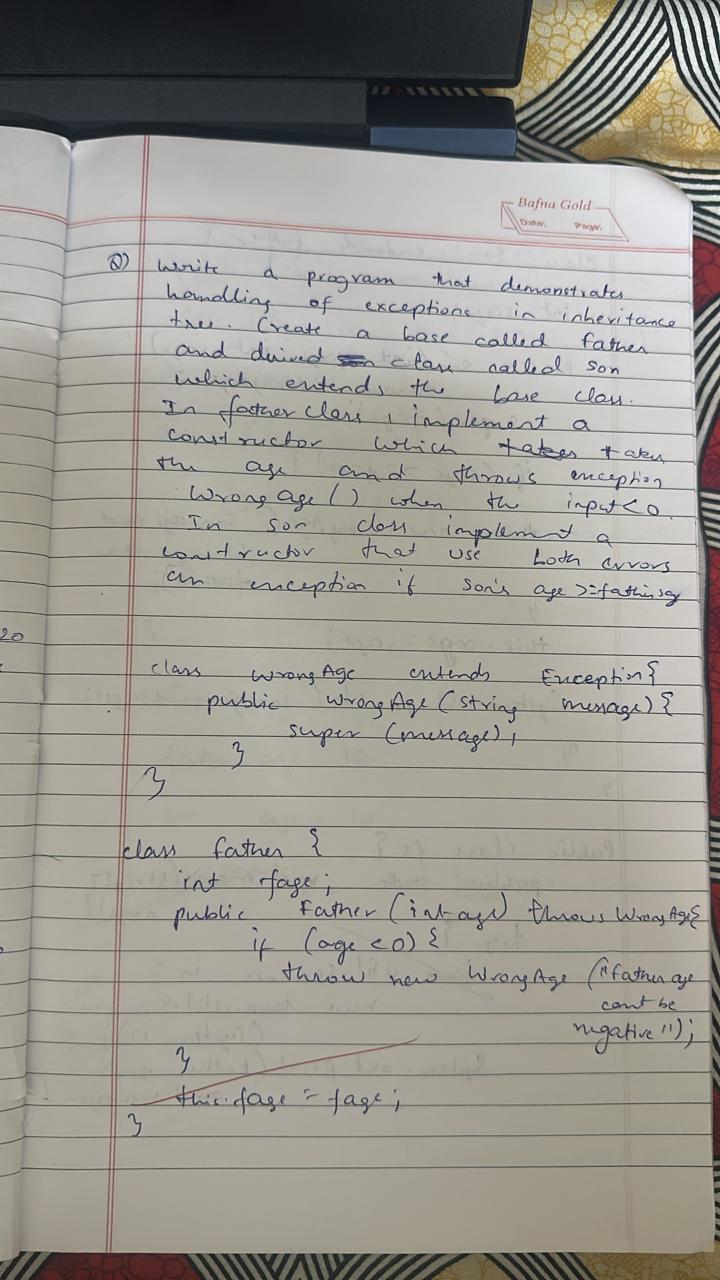 Bafna Gold
Date: Page:
Q) Write a program that demonstrates
handling of exceptions in inheritance
tree. Create a base called father
and derived class called son
which extends the base class.
In father class, implement a
constructor which takes takes
the age and throws exception
Wrong age () when the input<0.
In son class implement a
constructor that use both errors
an exception if son's age >=father's age
20
class wrongAge extends Exception{
public WrongAge (string message) {
super (message);
}
}
class father {
int fage;
public Father (int age) throws WrongAge{
if (age <0) {
throw new WrongAge ("father age
cant be
negative");
}
this.fage = fage;
}